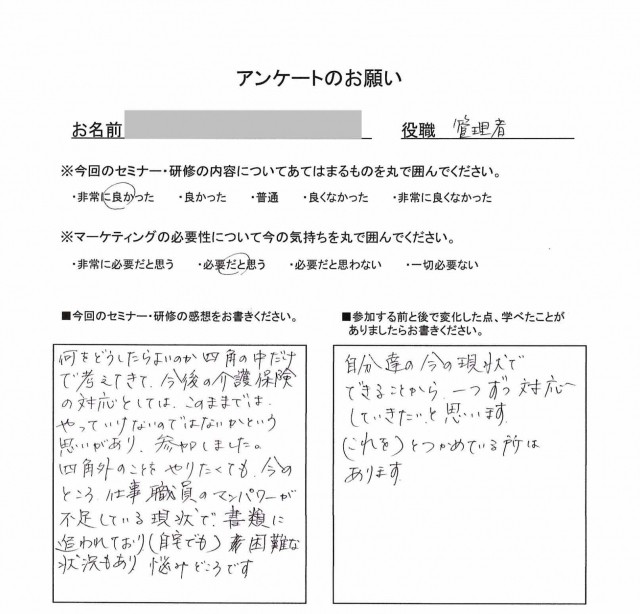 アンケートのお願い
お名前 役職 管理者
※今回のセミナー・研修の内容についてあてはまるものを丸で囲んでください。
・非常に良かった ・良かった ・普通 ・良くなかった ・非常に良くなかった
※マーケティングの必要性について今の気持ちを丸で囲んでください。
・非常に必要だと思う ・必要だと思う ・必要だと思わない ・一切必要ない
■今回のセミナー・研修の感想をお書きください。
何をどうしたらよいのか四角の中だけ
で考えてきて、今後の介護保険
の対応としては、このままでは、
やっていけないのではないかという
思いがあり、参加しました。
四角外のことをやりたくても、今の
ところ、仕事職員のマンパワーが
不足している現状で、書類に
追われており(自宅でも)困難な
状況もあり 悩みどころです
■参加する前と後で変化した点、学べたことが
ありましたらお書きください。
自分達の今の現状で
できることから、一つずつ対応
していきたいと思います。
(これを)とつかめている所は
あります。